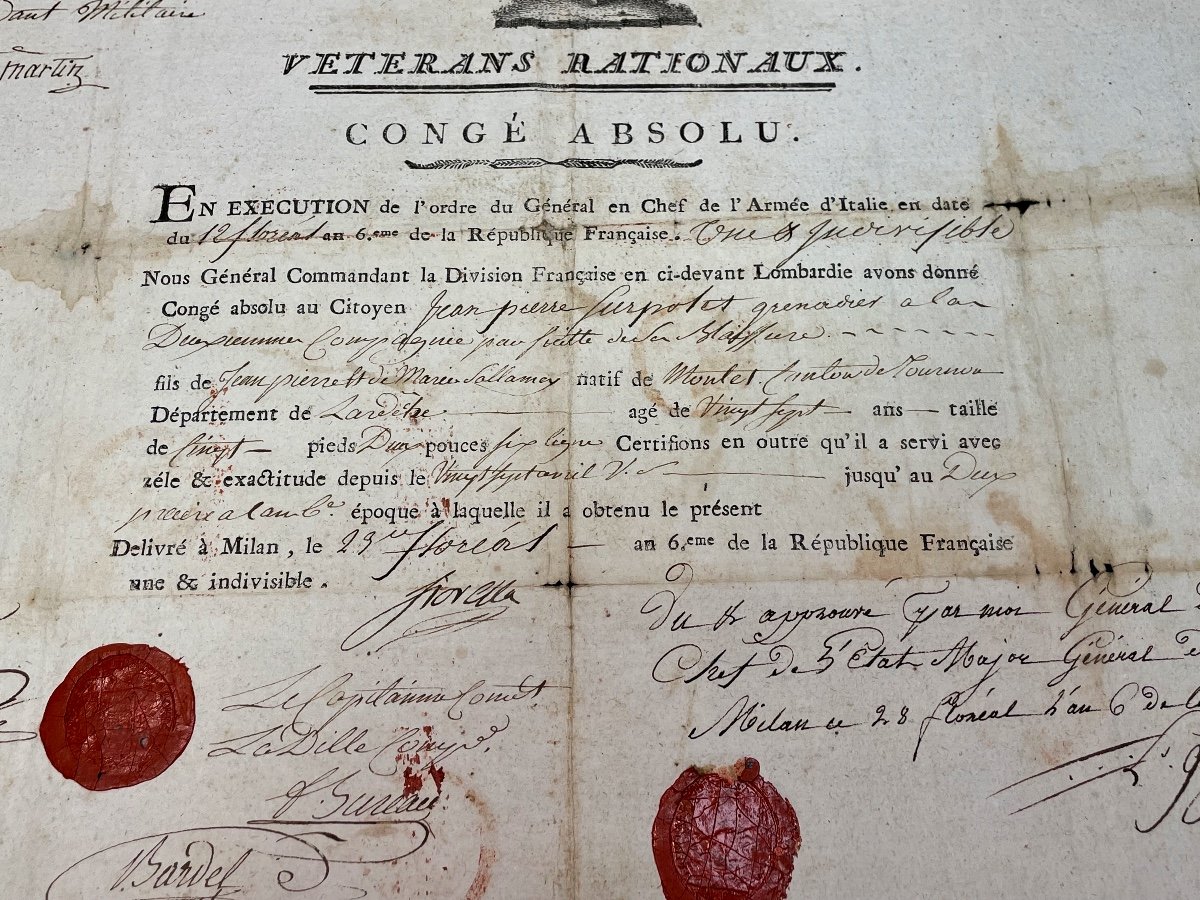 dant Militaire
martin
VETERANS NATIONAUX.
CONGÉ ABSOLU.
EN EXECUTION de l'ordre du Général en Chef de l'Armée d'Italie en date
du 12 floreal an 6.eme de la République Française. Une & Indivisible
Nous Général Commandant la Division Française en ci-devant Lombardie avons donné
Congé absolu au Citoyen Jean pierre grenadier a la
Deuxiemme Compagnie par suitte de sa Blassure.
fils de Jean pierre et de Marie natif de Canton de Tournon
Département de Lardeche agé de Vingt sept ans — taille
de Cinqt pieds Deux pouces six ligne Certifions en outre qu'il a servi avec
zéle & exactitude depuis le Vingt sept avril V. s. jusqu'au Deux
prairial an 6e époque à laquelle il a obtenu le présent
Delivré à Milan, le 29 floréal an 6.eme de la République Française
une & indivisible.
fiorella
Vu & approuvé par moi Général
Chef de l'Etat Major Général
Milan ce 28 floréal l'an 6 de la
Le Capitainne Com.dt
La Ditte Comp.e
Bureau
Bardel